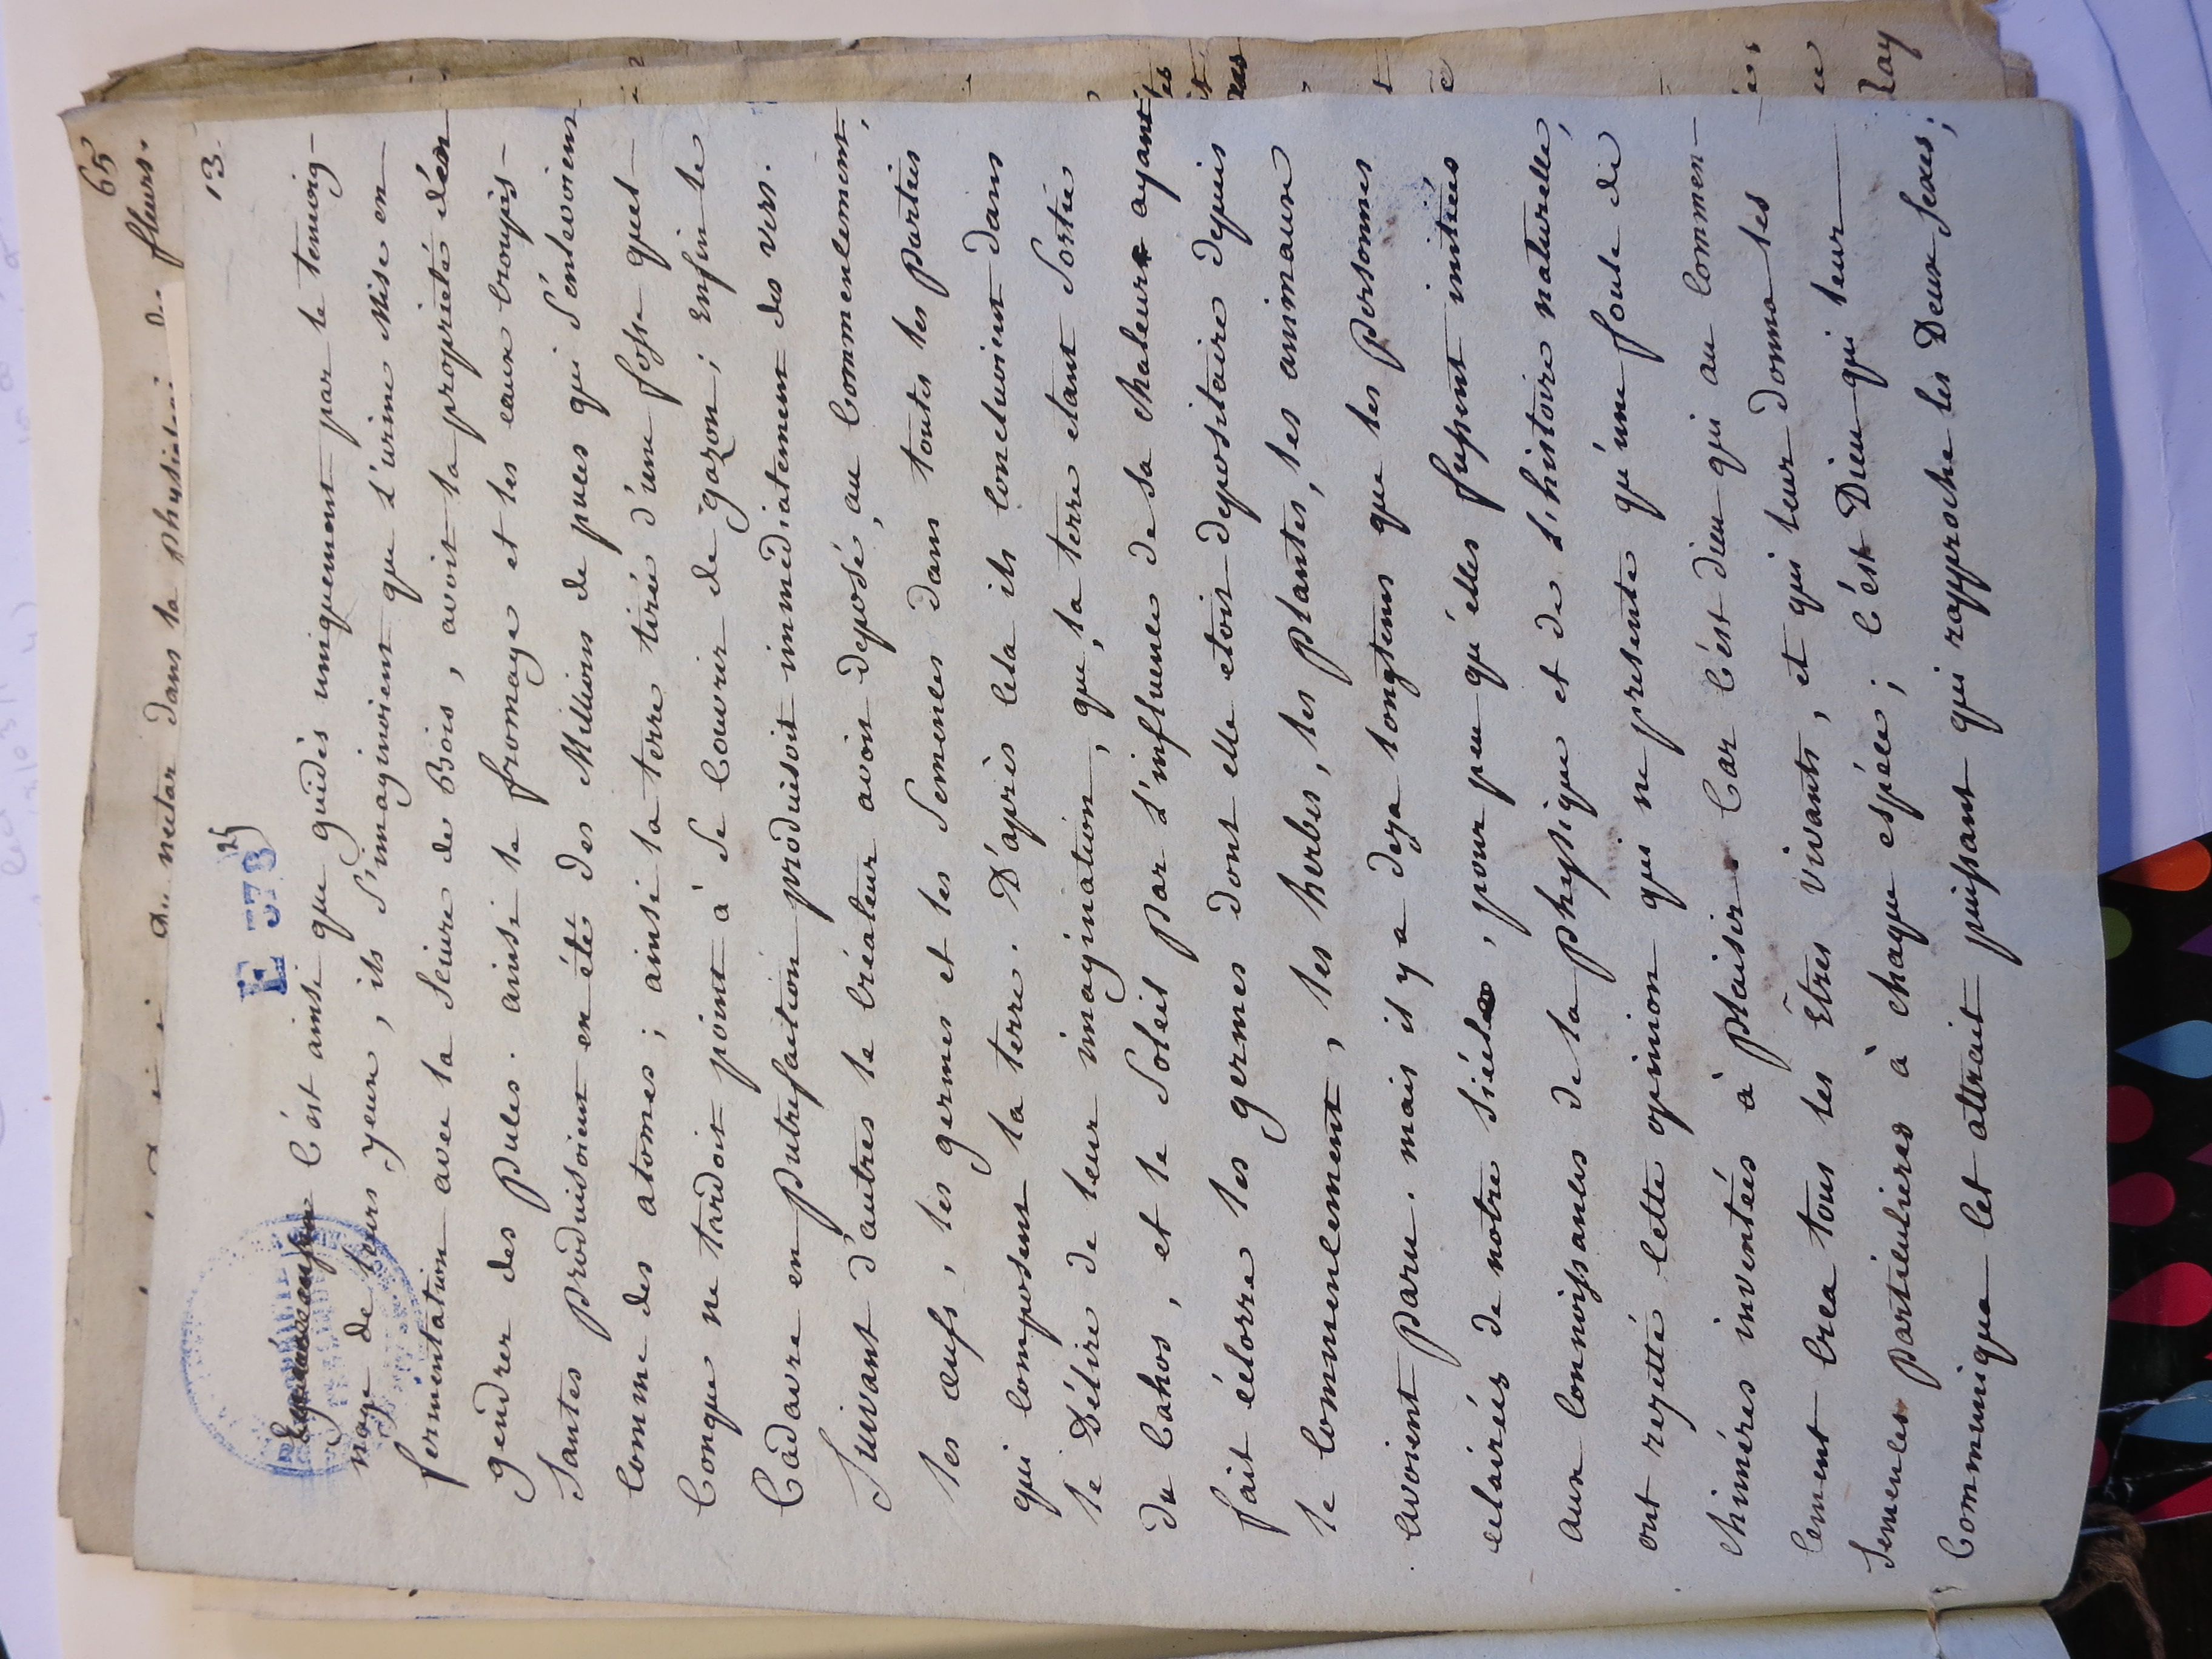 65
nectar dans la physiologie des fleurs.
13.
E 373
25
C'ést ainsi que guidés uniquement par le temoig-
nage de leurs yeux, ils s'imaginoient que l'urine Mise en
fermentation avec la Sciure de Bois, avoit la proprieté d'en
gendrer des puces. ainsi le fromage et les eaux croupis-
santes produisoient en été des Millions de puces qui S'enlevoient
Comme des atomes; ainsi la terre tirée d'une fosse quel-
Conque ne tardoit point à Se Couvrir de gazon; Enfin le
Cadavre en putrefaction produisoit immédiatement des vers.
Suivant d'autres le Créateur avoit deposé, au Commencement,
les œufs, les germes et les Semences dans toutes les parties
qui Composent la terre. D'après Cela ils Concluoient dans
le Délire de leur imagination, que, la terre etant Sortie
du Cahos, et le Soleil par l'influence de sa chaleur ayant
fait éclorre les germes dont elle etoit depositaire depuis
le Commencement, les herbes, les plantes, les animaux
avoient paru. mais il y a deja longtems que les personnes
eclairées de notre Siécle, pour peu qu'elles fussent initiées
aux Connoissances de la physique et de l'histoire naturelle,
ont rejetté Cette opinion qui ne presente qu'une foule de
Chiméres inventées à plaisir. Car C'ést dieu qui au Commen-
Cement Crea tous les Êtres vivants, et qui leur donna les
Semences particulieres à chaque espéce; C'ést Dieu qui leur
Communique Cet attrait puissant qui rapproche les Deux Sexes;
Ray